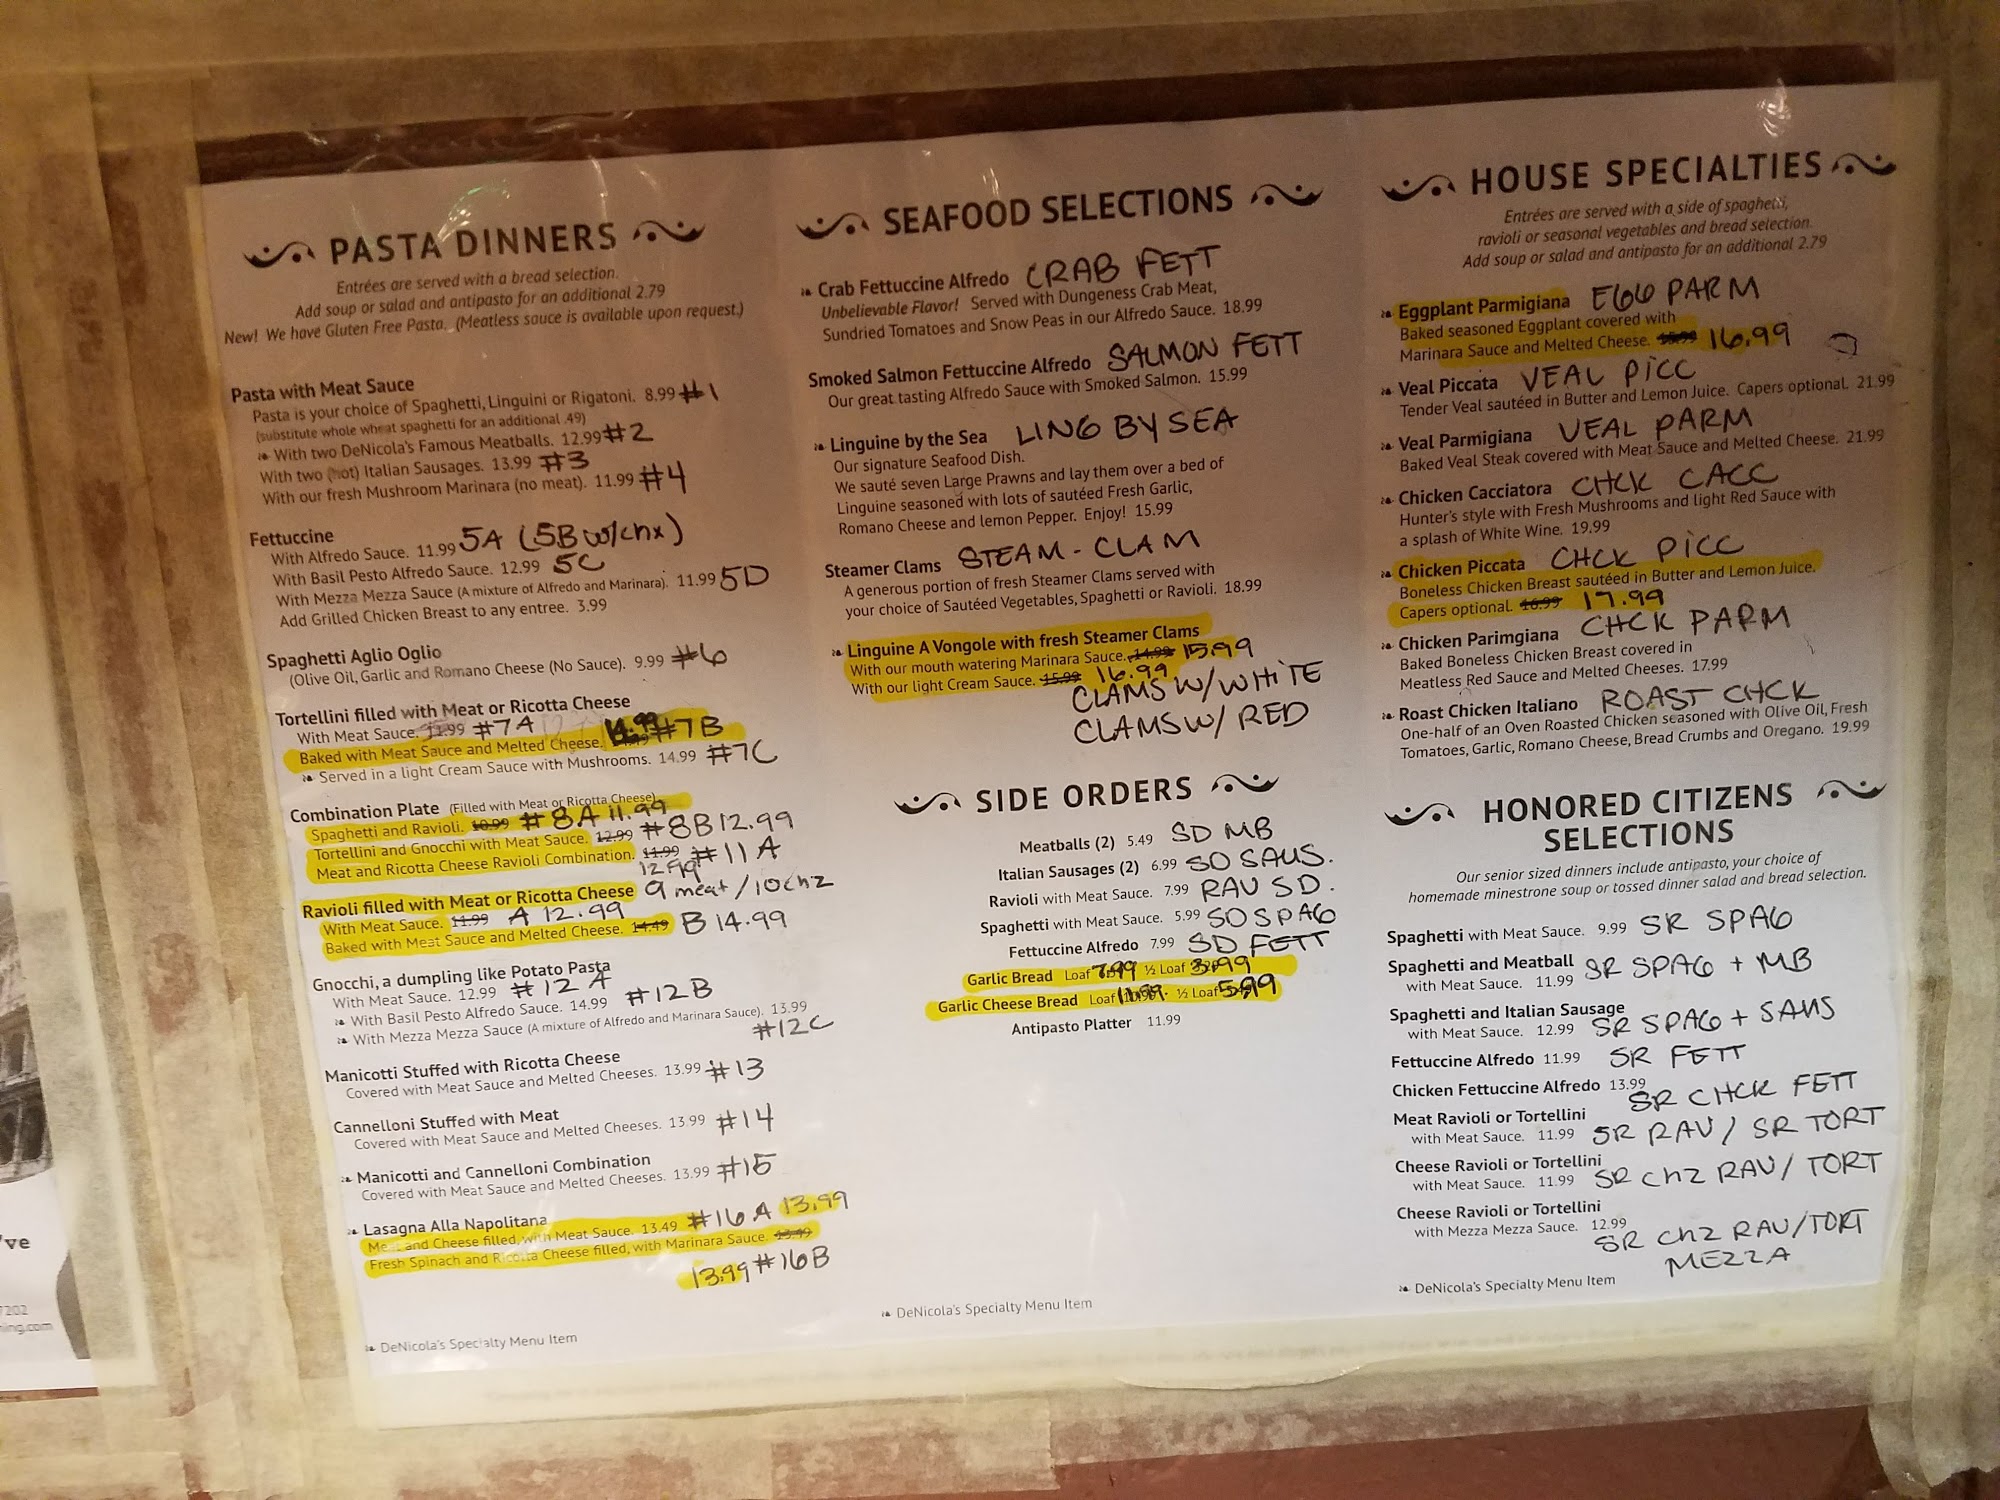 PASTA DINNERS
Entrées are served with a bread selection.
Add soup or salad and antipasto for an additional 2.79
New! We have Gluten Free Pasta. (Meatless sauce is available upon request.)
Pasta with Meat Sauce
Pasta is your choice of Spaghetti, Linguini or Rigatoni. 8.99 #1
(substitute whole wheat spaghetti for an additional .49)
With two DeNicola's Famous Meatballs. 12.99 #2
With two (hot) Italian Sausages. 13.99 #3
With our fresh Mushroom Marinara (no meat). 11.99 #4
Fettuccine
With Alfredo Sauce. 11.99 5A (5B w/chx)
With Basil Pesto Alfredo Sauce. 12.99 5C
With Mezza Mezza Sauce (A mixture of Alfredo and Marinara). 11.99 5D
Add Grilled Chicken Breast to any entree. 3.99
Spaghetti Aglio Oglio
(Olive Oil, Garlic and Romano Cheese (No Sauce). 9.99 #6
Tortellini filled with Meat or Ricotta Cheese
With Meat Sauce. 11.99 #7A
Baked with Meat Sauce and Melted Cheese. 14.99 #7B
Served in a light Cream Sauce with Mushrooms. 14.99 #7C
Combination Plate (Filled with Meat or Ricotta Cheese)
Spaghetti and Ravioli. 10.99 #8A 11.99
Tortellini and Gnocchi with Meat Sauce. 12.99 #8B 12.99
Meat and Ricotta Cheese Ravioli Combination. 11.99 #11A
12.99
Ravioli filled with Meat or Ricotta Cheese 9 meat/10chz
With Meat Sauce. 11.99 A 12.99
Baked with Meat Sauce and Melted Cheese. 14.49 B 14.99
Gnocchi, a dumpling like Potato Pasta
With Meat Sauce. 12.99 #12A
With Basil Pesto Alfredo Sauce. 14.99 #12B
With Mezza Mezza Sauce (A mixture of Alfredo and Marinara Sauce). 13.99
#12C
Manicotti Stuffed with Ricotta Cheese
Covered with Meat Sauce and Melted Cheeses. 13.99 #13
Cannelloni Stuffed with Meat
Covered with Meat Sauce and Melted Cheeses. 13.99 #14
Manicotti and Cannelloni Combination
Covered with Meat Sauce and Melted Cheeses. 13.99 #15
Lasagna Alla Napolitana
Meat and Cheese filled, with Meat Sauce. 13.49 #16A 13.99
Fresh Spinach and Ricotta Cheese filled, with Marinara Sauce. 13.49
13.99 #16B
DeNicola's Specialty Menu Item
SEAFOOD SELECTIONS
Crab Fettuccine Alfredo CRAB FETT
Unbelievable Flavor! Served with Dungeness Crab Meat,
Sundried Tomatoes and Snow Peas in our Alfredo Sauce. 18.99
Smoked Salmon Fettuccine Alfredo SALMON FETT
Our great tasting Alfredo Sauce with Smoked Salmon. 15.99
Linguine by the Sea LING BY SEA
Our signature Seafood Dish.
We sauté seven Large Prawns and lay them over a bed of
Linguine seasoned with lots of sautéed Fresh Garlic,
Romano Cheese and lemon Pepper. Enjoy! 15.99
Steamer Clams STEAM-CLAM
A generous portion of fresh Steamer Clams served with
your choice of Sautéed Vegetables, Spaghetti or Ravioli. 18.99
Linguine A Vongole with fresh Steamer Clams
With our mouth watering Marinara Sauce. 14.99 15.99
With our light Cream Sauce. 15.99 16.99
CLAMS W/ WHITE
CLAMS W/ RED
SIDE ORDERS
Meatballs (2) 5.49 SD MB
Italian Sausages (2) 6.99 SD SAUS.
Ravioli with Meat Sauce. 7.99 RAV SD.
Spaghetti with Meat Sauce. 5.99 SD SPAG
Fettuccine Alfredo 7.99 SD FETT
Garlic Bread Loaf 7.99 ½ Loaf 3.99
Garlic Cheese Bread Loaf 11.99 ½ Loaf 5.99
Antipasto Platter 11.99
DeNicola's Specialty Menu Item
HOUSE SPECIALTIES
Entrées are served with a side of spaghetti,
ravioli or seasonal vegetables and bread selection.
Add soup or salad and antipasto for an additional 2.79
Eggplant Parmigiana EGG PARM
Baked seasoned Eggplant covered with
Marinara Sauce and Melted Cheese. 15.99 16.99
Veal Piccata VEAL PICC
Tender Veal sautéed in Butter and Lemon Juice. Capers optional. 21.99
Veal Parmigiana VEAL PARM
Baked Veal Steak covered with Meat Sauce and Melted Cheese. 21.99
Chicken Cacciatora CHCK CACC
Hunter's style with Fresh Mushrooms and light Red Sauce with
a splash of White Wine. 19.99
Chicken Piccata CHCK PICC
Boneless Chicken Breast sautéed in Butter and Lemon Juice.
Capers optional. 16.99 17.99
Chicken Parimgiana CHCK PARM
Baked Boneless Chicken Breast covered in
Meatless Red Sauce and Melted Cheeses. 17.99
Roast Chicken Italiano ROAST CHCK
One-half of an Oven Roasted Chicken seasoned with Olive Oil, Fresh
Tomatoes, Garlic, Romano Cheese, Bread Crumbs and Oregano. 19.99
HONORED CITIZENS
SELECTIONS
Our senior sized dinners include antipasto, your choice of
homemade minestrone soup or tossed dinner salad and bread selection.
Spaghetti with Meat Sauce. 9.99 SR SPAG
Spaghetti and Meatball SR SPAG + MB
with Meat Sauce. 11.99
Spaghetti and Italian Sausage
with Meat Sauce. 12.99 SR SPAG + SAUS
Fettuccine Alfredo 11.99 SR FETT
Chicken Fettuccine Alfredo 13.99
SR CHCK FETT
Meat Ravioli or Tortellini
with Meat Sauce. 11.99 SR RAV/ SR TORT
Cheese Ravioli or Tortellini
with Meat Sauce. 11.99 SR chz RAV/ TORT
Cheese Ravioli or Tortellini
with Mezza Mezza Sauce. 12.99
SR chz RAV/TORT
MEZZA
DeNicola's Specialty Menu Item
've
7202
ning.com